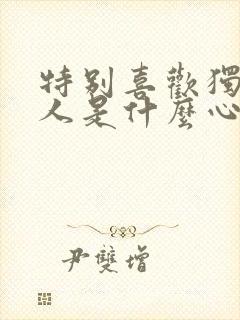 特别喜歡獨
人是什麼心
尹雙增